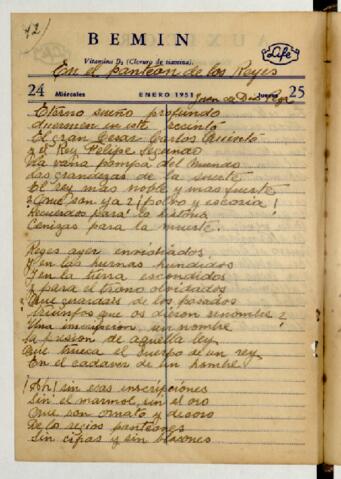 42)
BEMIN
Vitamina B1 (Cloruro de tiamina).
Life
En el panteon de los Reyes
24 Miércoles ENERO 1951 Jueves 25
Juan de Dios Peza
Eterno sueño profundo
duermen en este recinto
El gran Cesar Carlos Quinto
y el Rey Felipe Segundo
La vana pompa del mundo
Las grandezas de la suerte
El rey mas noble y mas fuerte
¿Que son ya? ¡polvo y escoria!
Recuerdos para la historia
Cenizas para la muerte.
Reyes ayer
Y en las hurnas hundidos
Y en la tierra escondidos
Y para el trono olvidados
¿Que guardais de los pasados
triunfos que os dieron renombre?
Una inscripcion, un nombre
La presion de aquella ley
Que trueca el cuerpo de un rey
En el cadaver de un hombre
¡Ah! sin esas inscripciones
Sin el marmol, sin el oro
Que son ornato y decoro
De lo regios panteones
Sin cifras y sin blasones